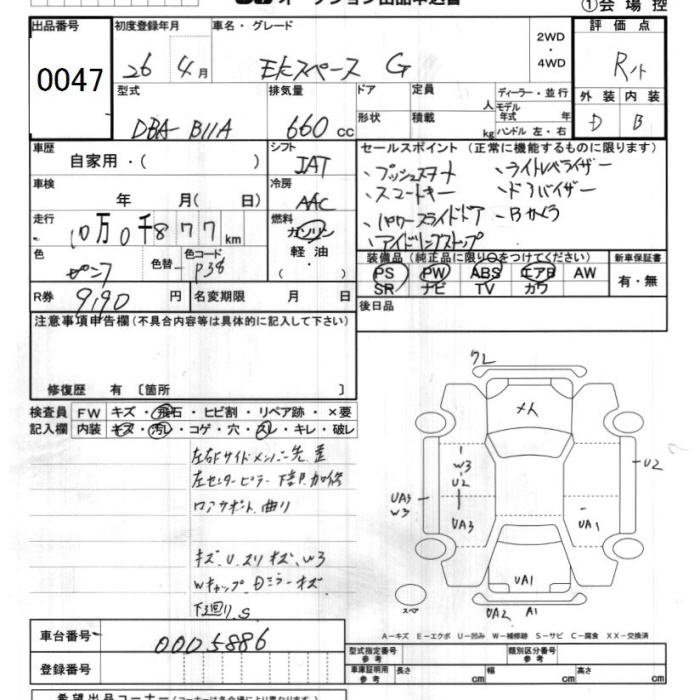 オークション出品申込書
①会場控
出品番号 初度登録年月 車名・グレード 2WD・4WD 評価点
0047 26 4月 ekスペース G R
外装 内装
D B
型式 排気量 ドア 定員 人 ディーラー・並行
形状 積載 kg モデル年式 年
ハンドル 左・右
DBA B11A 660 cc
車歴 シフト セールスポイント (正常に機能するものに限ります)
自家用・( ) IAT
・プッシュスタート ・ライトレベライザー
車検 冷房 ・スマートキー ・ドアバイザー
年 月( 日) AAC ・パワースライドドア ・Bカメラ
走行 燃料 ・アイドリングストップ
10万0千877km ガソリン
軽油
・( )
色 色替 色コード
P38
装備品 (純正品に限り○をつけてください) 新車保証書
PS PW ABS エアB AW 有・無
SR ナビ TV カワ
R券 9,190 円 名変期限 月 日
後日品
注意事項申告欄 (不具合内容等は具体的に記入して下さい)
修復歴 有 〔箇所 〕
検査員 FW キズ・飛石・ヒビ割・リペア跡・×要
記入欄 内装 キズ・汚レ・コゲ・穴・スレ・キレ・破レ
左右Fサイドメンバー先 歪
左センターピラー下部 加修
ロアサポート 曲り
キズ、U、スリキズ、W3
Wキャップ、Dミラーキズ
下廻り S
フレ
メ人
W3
U2
U2
UA3
W3
UA3
UA1
UA1
スペア
UA2 A1
A－キズ E－エクボ U－凹み W－補修跡 S－サビ C－腐食 XX－交換済
車台番号 0005886
登録番号
型式指定番号 参考 類別区分番号 参考
車庫証明用 参考 長さ cm 幅 cm 高さ cm
希望出品コーナー (コーナーは各会場により異なります)